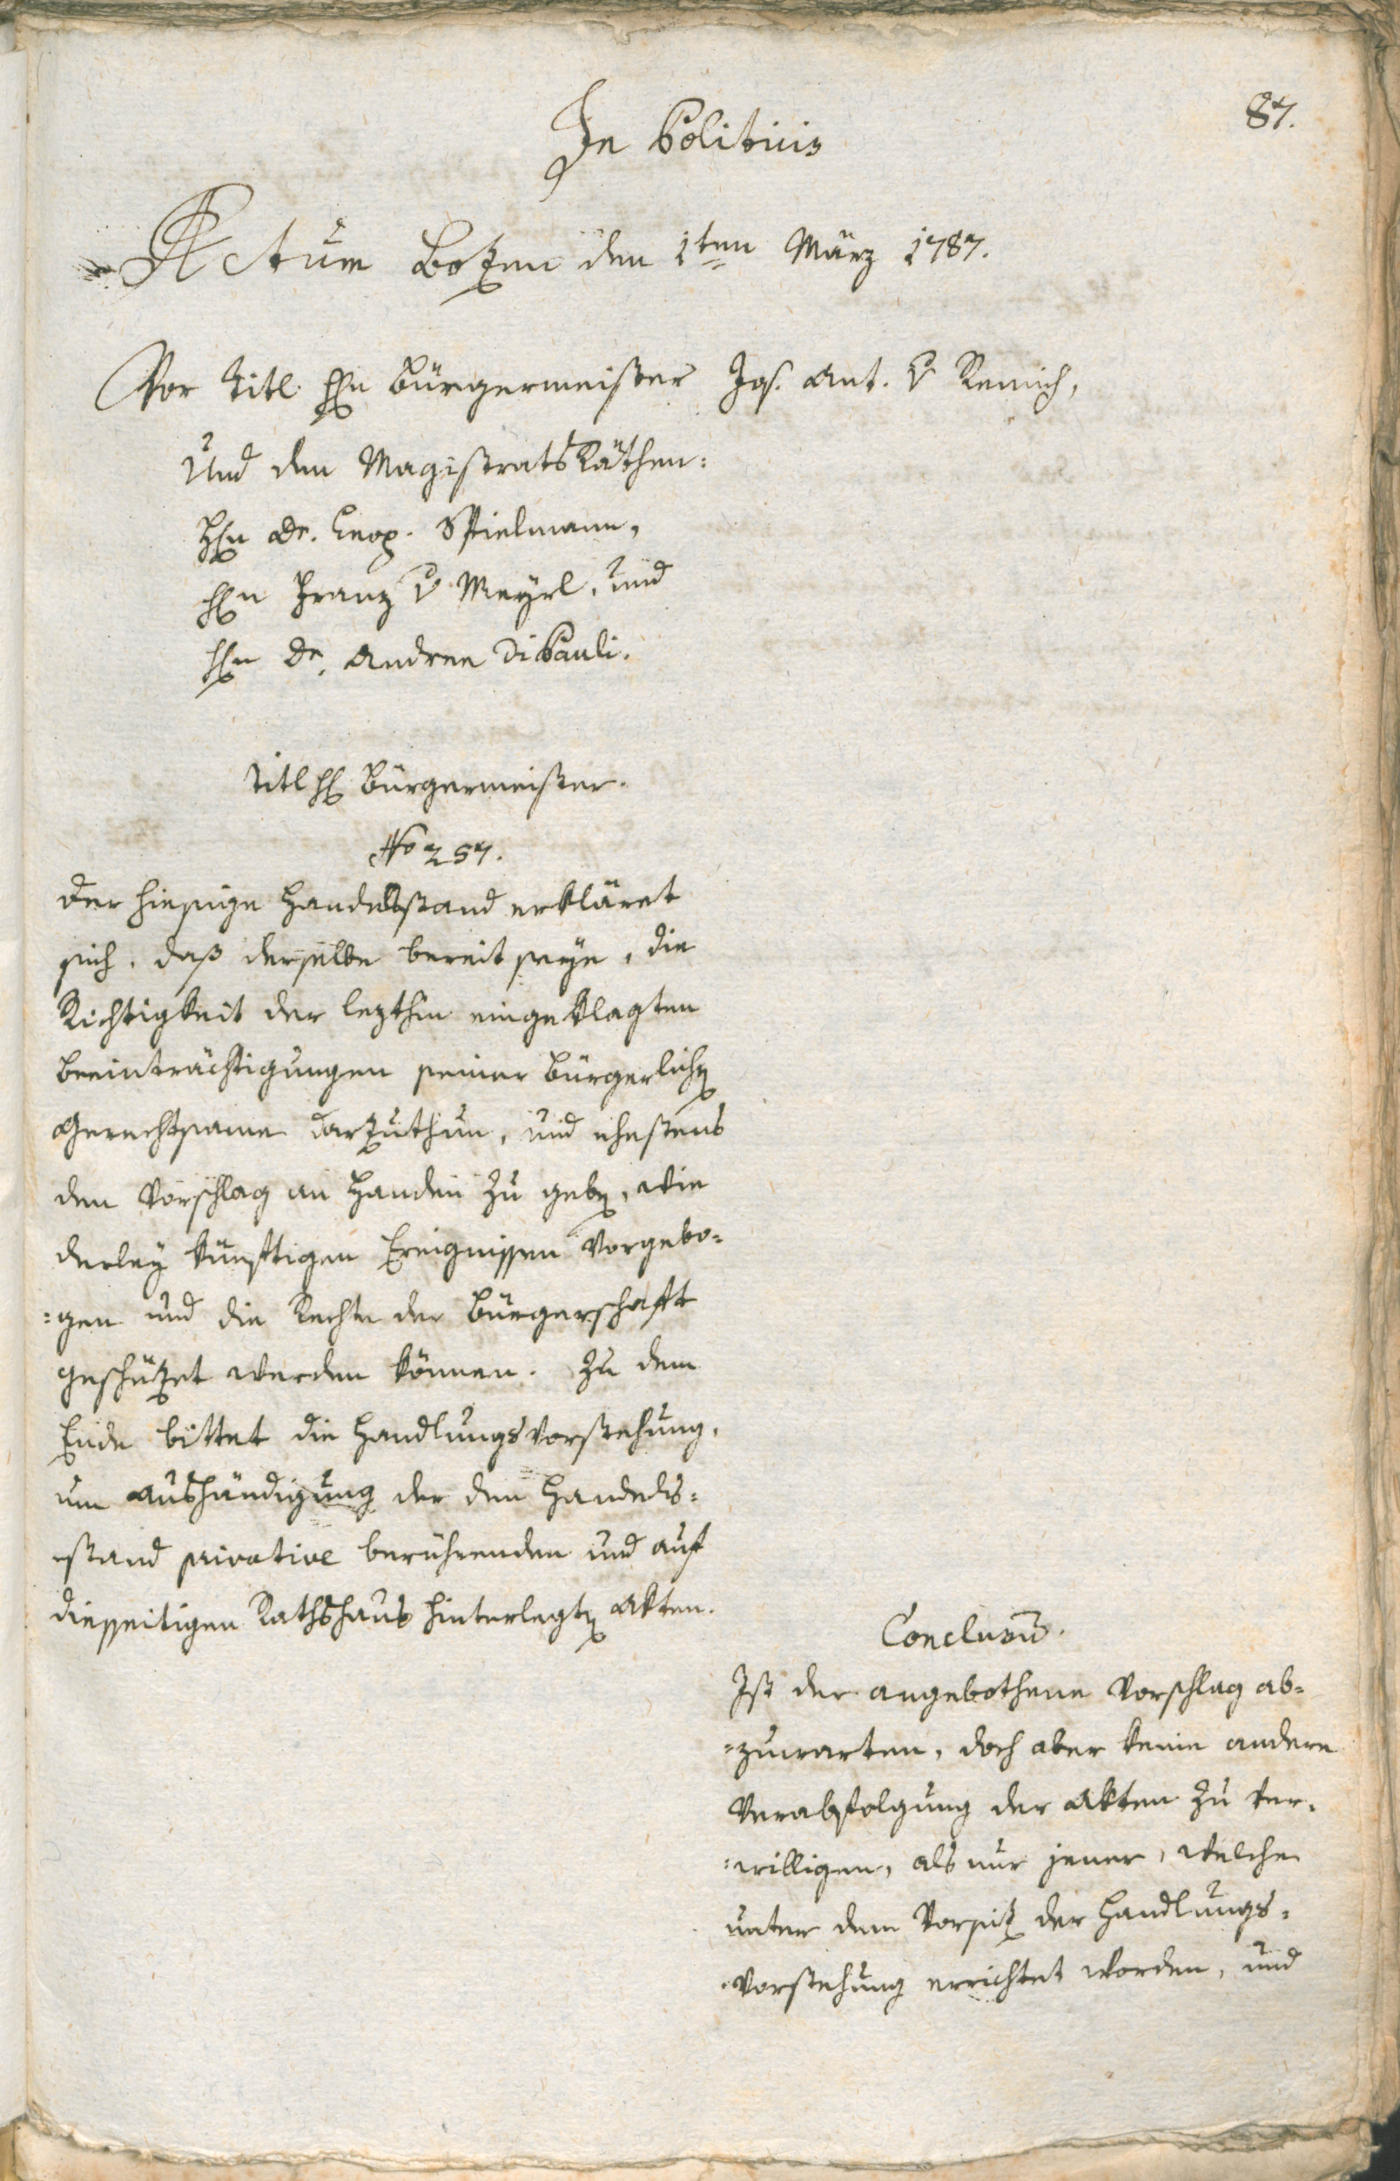 87.
In Politicis
Actum Botzen den 1ten März 1787.
Vor Titl. Hn Bürgermeister Jos. Ant. v Remich,
Und den Magistrats Räthen:
Hn Dr. Leop. Spielmann,
Hn Franz v Mayrl, und
Hn Dr. Andree Di Pauli.
Titl H Bürgermeister.
No 257.
Der hiesige Handelsstand erkläret
sich, daß derselbe bereit seye, die
Richtigkeit der lezthin eingeklagten
Beeinträchtigungen seiner Bürgerlichen
Gerechtsame darzuthun, und ehestens
den Vorschlag an Handen zu geben, wie
derley künftigen Ereignissen Vorgebo-
=gen und die Rechte der Bürgerschaft
geschützet werden können. Zu dem
Ende bittet die Handlungsvorstehung,
um Aushändigung der den Handels=
=stand privative berührenden und auf
diesseitigen Rathshaus hinterlegten Akten.
Conclusum.
Ist der angebothene Vorschlag ab=
=zuwarten, doch aber keine andere
Verabfolgung der Akten zu ver=
=willigen, als nur jener, welche
unter dem Vorsitz der Handlungs=
=vorstehung errichtet worden, und